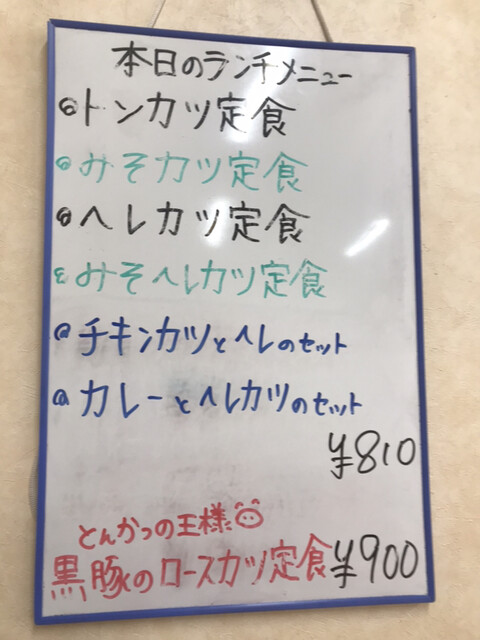 本日のランチメニュー
トンカツ定食
みそカツ定食
ヘレカツ定食
みそヘレカツ定食
チキンカツとヘレのセット
カレーとヘレカツのセット
¥810
とんかつの王様
黒豚のロースカツ定食¥900